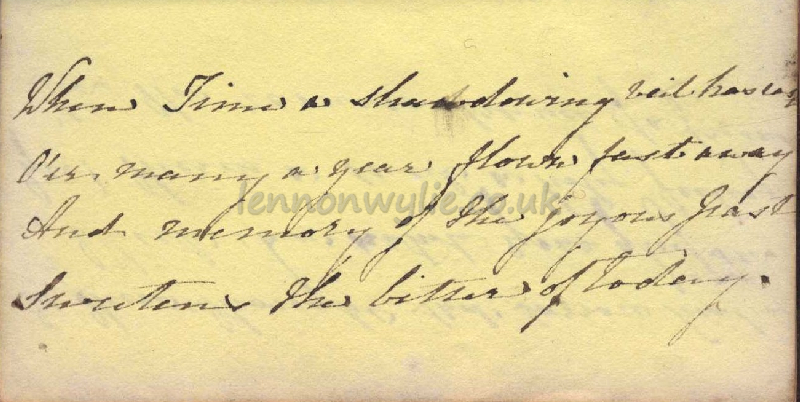 When Time a shadowing veil has cast
O'er many a year flown fast away
And memory of the joyous past
lennonwylie.co.uk
Sweetens the bitter of today.